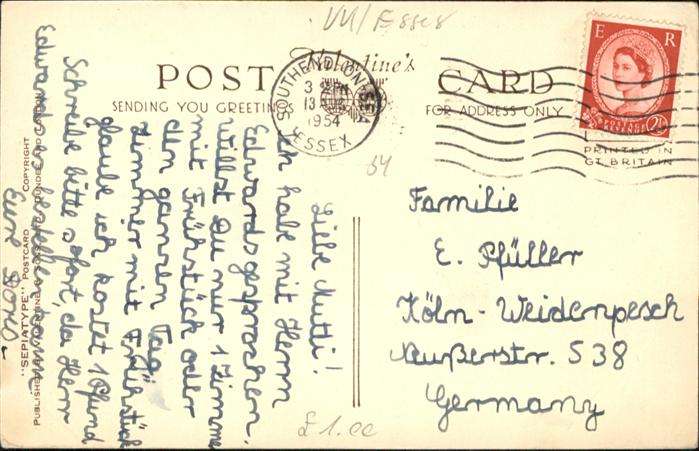 VII/Essex
Valentine's
POST CARD
SENDING YOU GREETINGS
FOR ADDRESS ONLY
SOUTHEND-ON-SEA
3
13
1954
ESSEX
E R
POSTAGE
REVENUE
2½
PRINTED IN
GT BRITAIN
54
Liebe Mutti!
Ich habe mit Herrn
Edwards gesprochen.
Willst Du nur 1 Zimmer
mit Frühstück oder
den ganzen Tag?
Zimmer mit Frühstück
glaube ich kostet 1 Pfund
Schreibe bitte sofort, da Herr
Edwards es bestellen
Eure Doris
Familie
E. Pfüller
Köln-Weidenpesch
Neußerstr. 538
Germany
£1.00
"SEPIATYPE" POSTCARD COPYRIGHT
PUBLISHED BY VALENTINE & SONS LTD. DUNDEE AND LONDON